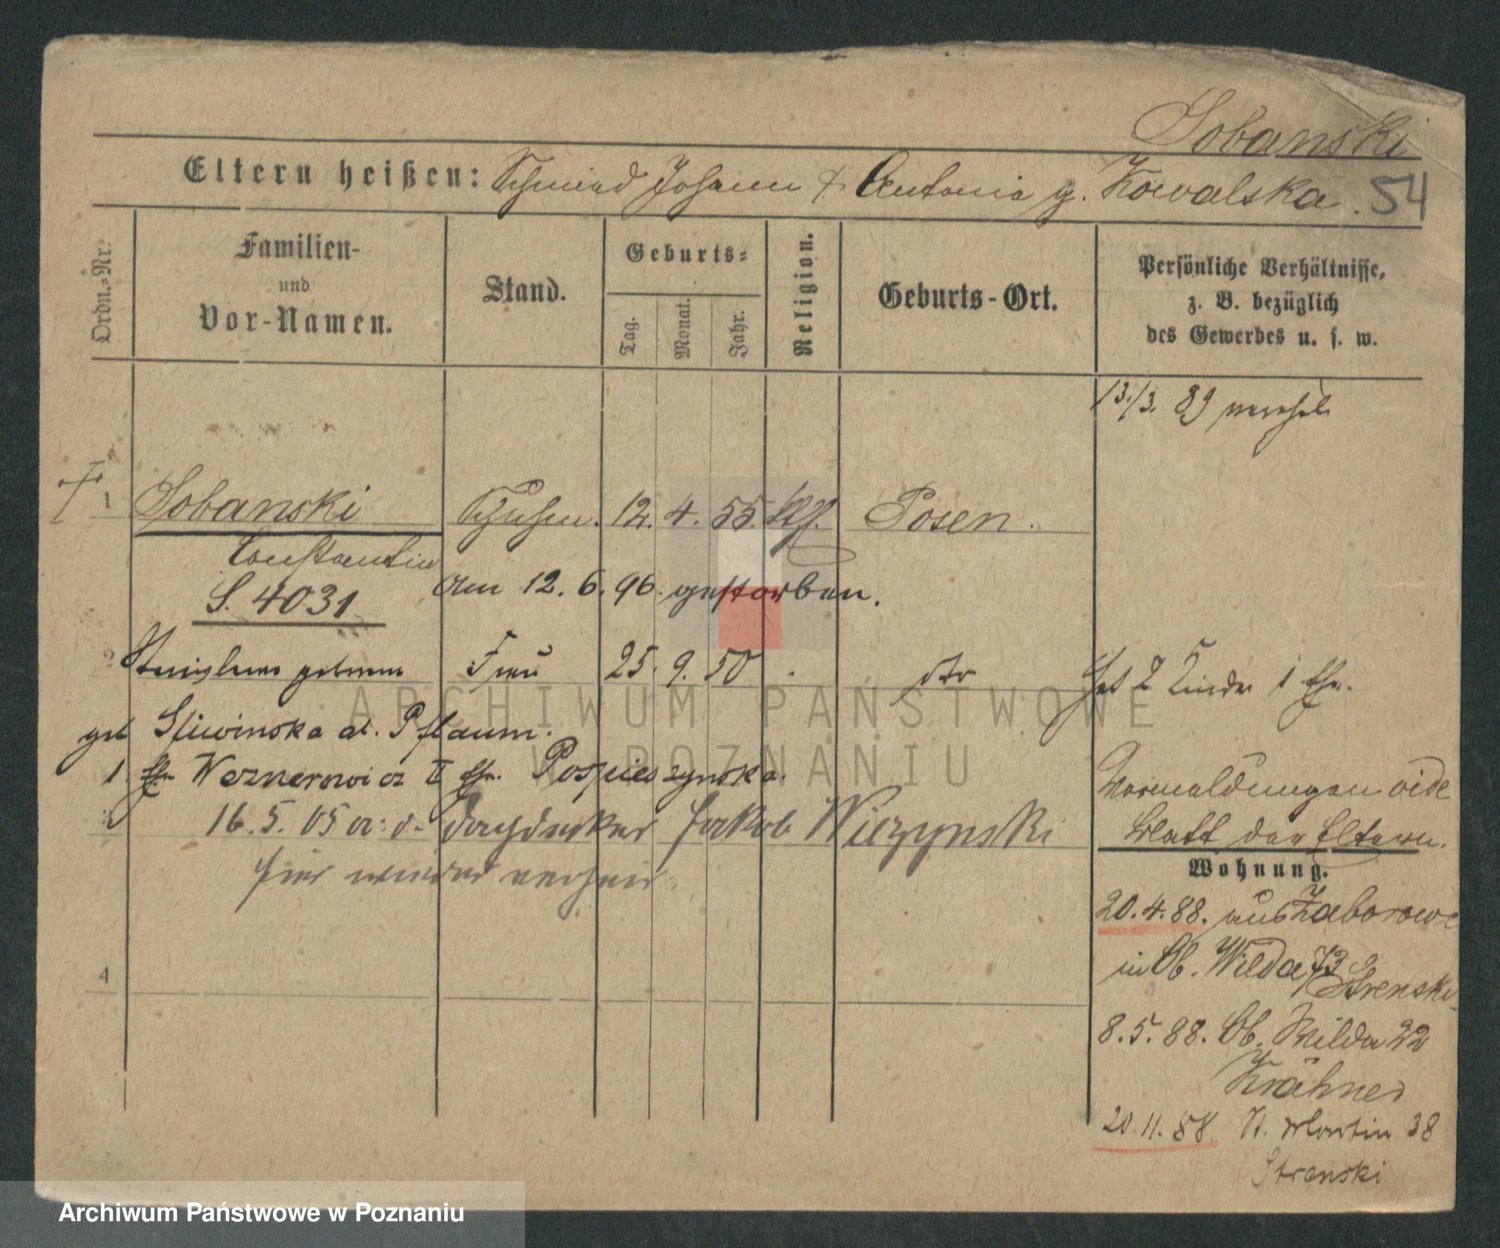 Sobanski
Eltern heißen: Schmied Johann & Antonia g. Kowalska. 54
Ordn.-Nr.
Familien-
und
Vor-Namen.
Stand.
Geburts-
Tag.
Monat.
Jahr.
Religion.
Geburts-Ort.
Persönliche Verhältnisse,
z. B. bezüglich
des Gewerbes u. s. w.
13./3. 89
1 Sobanski Schuhm. 12. 4. 55. kth. Posen.
Constantin
S. 4031
am 12. 6. 96. gestorben.
2 geborene Frau 25. 9. 50 dto
Hat 2 Kinder 1 Ehe.
geb Sliwinska ad. Pflaum.
1. Ehe Weznerowicz II Ehe. Pospieszynska.
3
16. 5. 05 a. d. Dachdecker Jakob Wiezynski
hier wieder verheir.
4
Vormeldungen vide
Blatt der Eltern.
Wohnung.
20. 4. 88. aus Zaborowo
in Ob. Wilda 73
Strenski
8. 5. 88. Ob. Wilda 22
Krähner
20. 11. 88 St. Martin 38
Strenski
ARCHIWUM PAŃSTWOWE
W POZNANIU
Archiwum Państwowe w Poznaniu